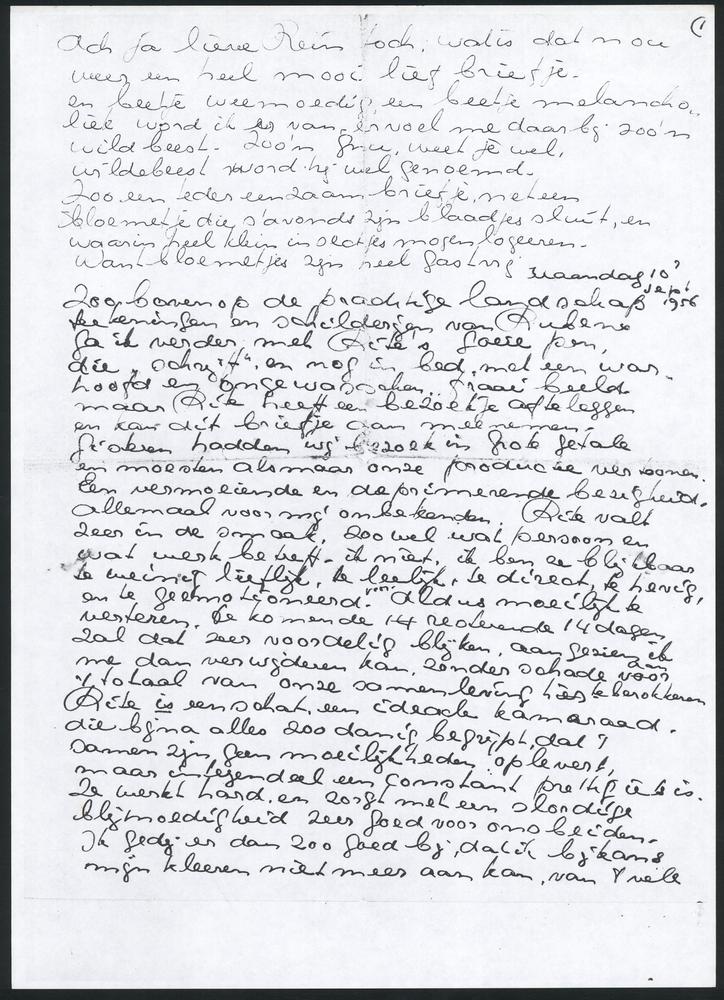 (1
Ach ja lieve Rein toch, wat is dat nou
weer een heel mooi lief briefje.
en beetje weemoedig, een beetje melancho„
liek word ik er van, en voel me daar bij zoo'n
wildbeest. Zoo'n gnu, weet je wel,
wildebeest wordt hij wel genoemd.
Zoo een teder eenzaam briefje, met een
bloemetje die s'avonds zijn blaadjes sluit, en
waarin heel klein insectjes mogen logeeren.
Want bloemetjes zijn heel gastvrij
Maandag 10?
Sept
1956
Zoo bovenop de prachtige landschap
teekeningen en schilderijen van Rubens
ga ik verder, met Rite's goeie pen,
die „schrijft", en nog in bed, met een war-
hoofd en ongewasschen. fraai beeld.
maar Rite heeft een bezoekje af te leggen
en kan dit briefje dan meenemen.
Gisteren hadden wij bezoek in grote getale
en moesten alsmaar onze productie vertoonen.
Een vermoeiende en deprimerende bezigheid.
allemaal voor mij onbekenden. Rite valt
zeer in de smaak, zoowel wat persoon en
wat werk betreft. ik niet, ik ben er blijkbaar
te weinig lieflijk, te leelijk, te direct, te hevig,
en te geëmotioneerd. Aldus moeilijk te
verteren. De komende 14 resterende 14 dagen
zal dat zeer voordelig blijken, aangezien ik
me dan verwijderen kan, zonder schade voor
't totaal van onze samenleving hier te berokkenen
Rite is een schat, een ideale kameraad.
die bijna alles zoodanig begrijpt, dat 't
samen zijn geen moeilijkheden oplevert,
maar integendeel een constant prettig iets is.
Ze werkt hard, en zorgt met een slordige
blijmoedigheid zeer goed voor ons beiden.
Ik gedij er dan zoo goed bij, dat ik bijkans
mijn kleeren niet meer aan kan, van 't vele